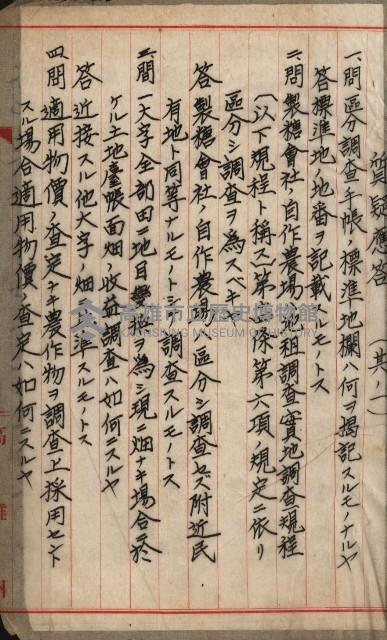 質疑應答　（其ノ一）
一、問　區分調査手帳ノ標準地欄ハ何ヲ揭記スルモノナルヤ
答　標準地ノ地番ヲ記載スルモノトス
二、問　製糖會社ノ自作農場ハ地租調査實地調査規程
（以下規程ト稱ス）第一條第六項ノ規定ニ依リ
區分シ調査ヲ為スベキヤ
答　製糖會社ノ自作農場ハ區分シ調査セズ附近民
有地ト同等ナルモノトシテ調査スルモノトス
三、間　一大字全部田ニ地目變換ヲ為シ現ニ畑ナキ場合ニ於
ケル土地臺帳面畑ノ收益調査ハ如何ニスルヤ
答　近接スル他大字ノ畑ニ準スルモノトス
四、問　適用物價ノ査定ナキ農作物ヲ調査上採用セント
スル場合適用物價ノ査定ハ如何ニスルヤ
高雄市立歷史博物館
KAOHSIUNG MUSEUM OF HISTORY
高雄州